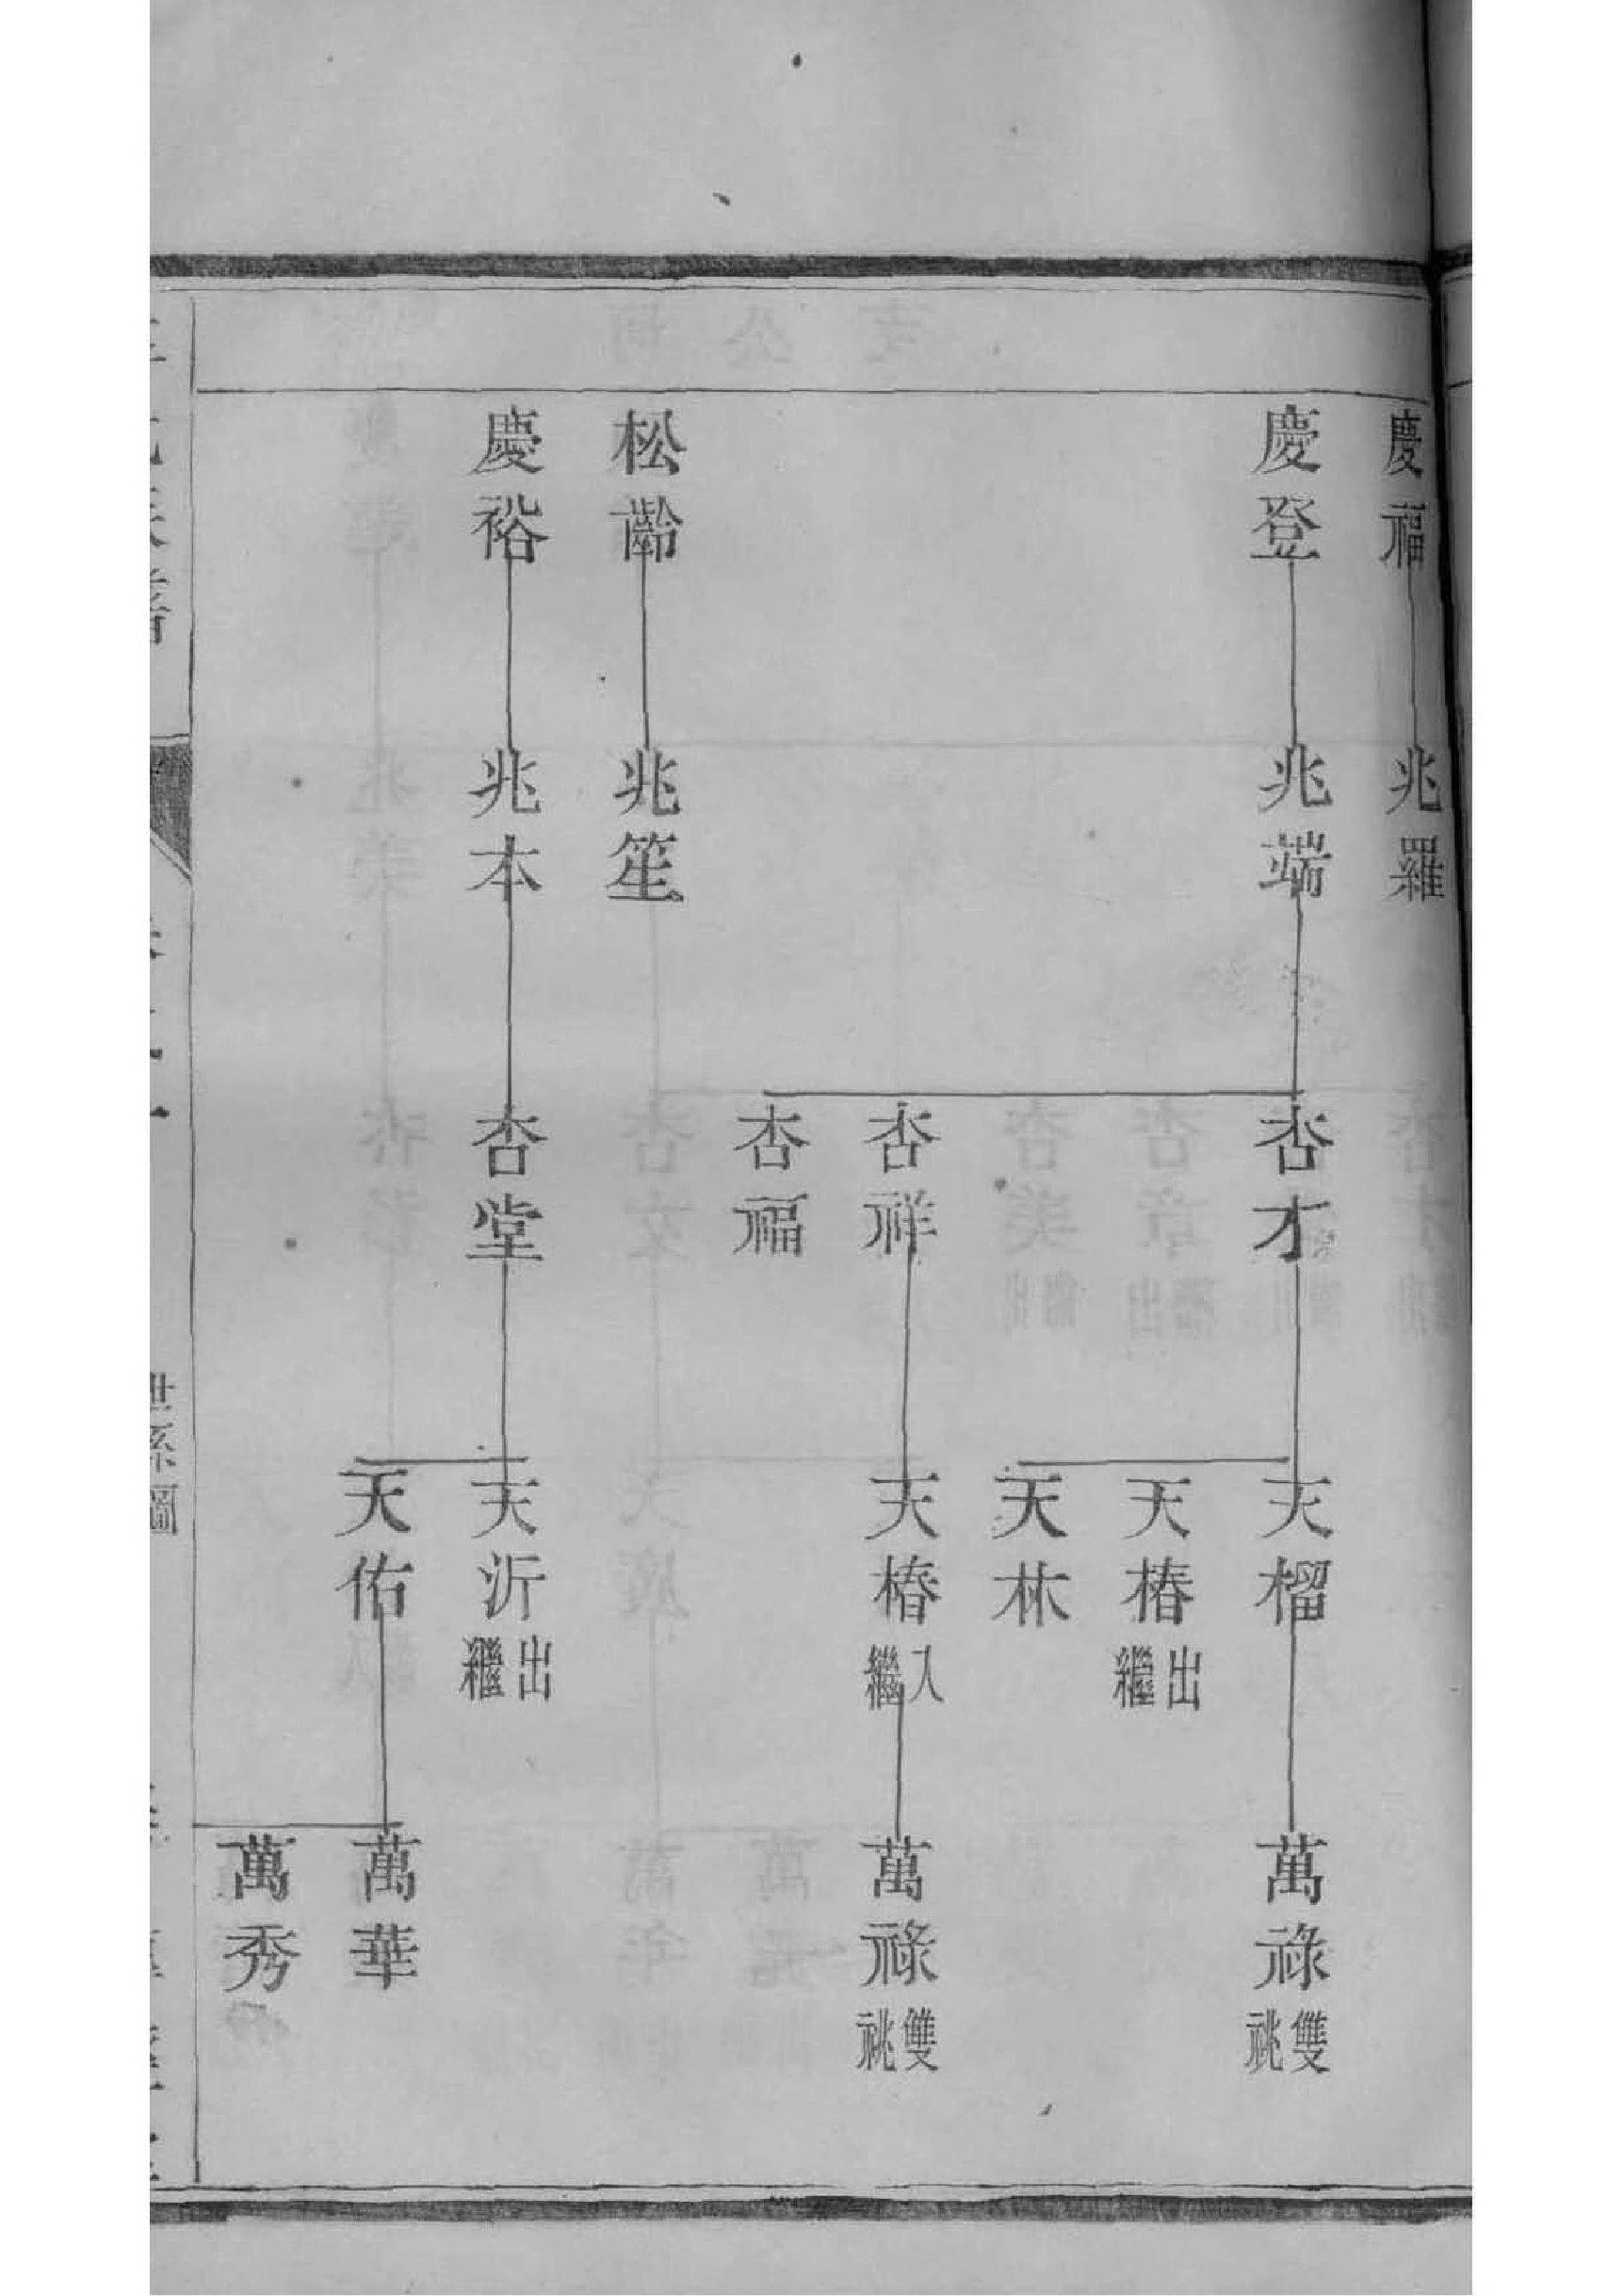 慶福
兆羅
慶登
兆端
杏才
天榴
萬祿
雙祧
天椿
出繼
天林
杏祥
天椿
入繼
萬祿
雙祧
杏福
松齡
兆笙
慶裕
兆本
杏堂
天沂
出繼
天佑
萬華
萬秀
世系圖